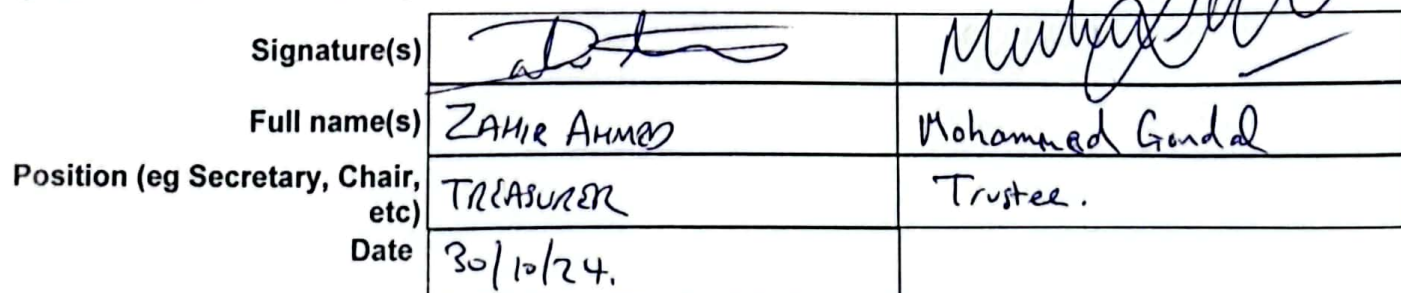 Signature(s)
Full name(s) ZAHIR AHMED Mohammed Gondal
Position (eg Secretary, Chair,
etc) TREASURER Trustee.
Date 30/10/24.